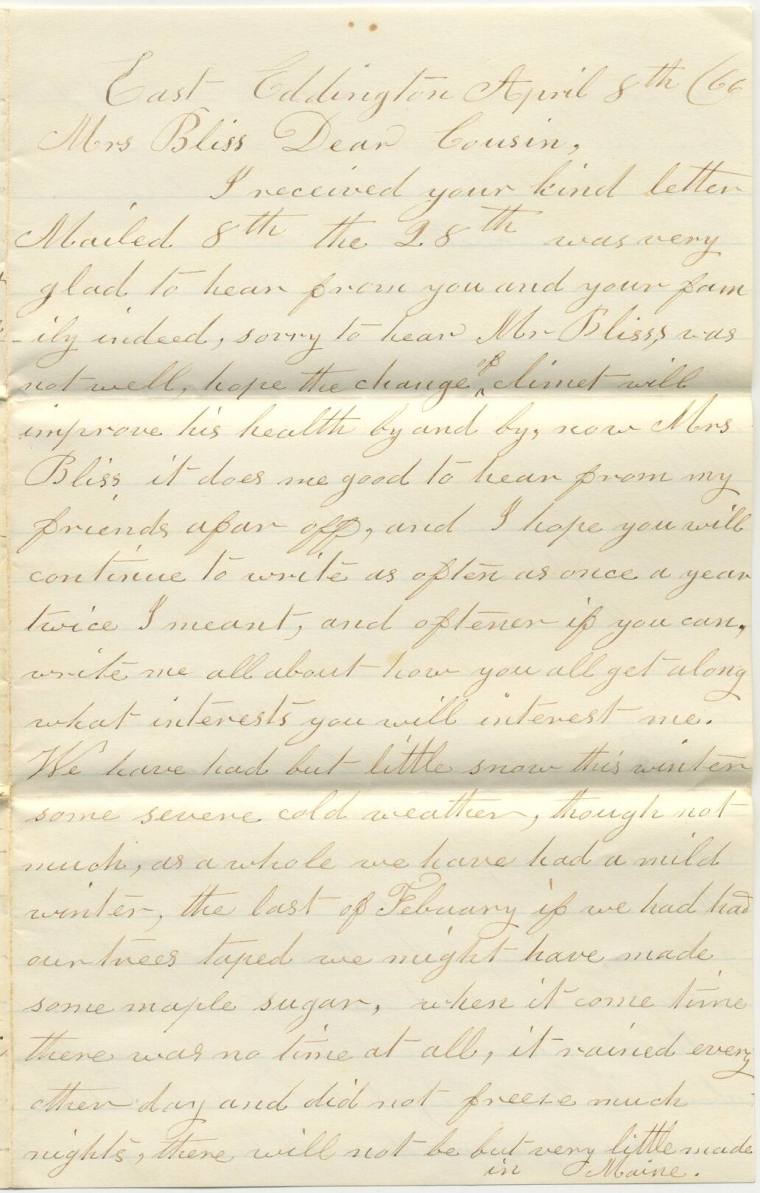 East Eddington April 8th (66
Mrs Bliss Dear Cousin,
I received your kind letter
Mailed 8th the 28th was very
glad to hear from you and your fam
-ily indeed, sorry to hear Mr Bliss, was
not well, hope the change of climet will
improve his health by and by, now Mrs
Bliss it does me good to hear from my
friends afar off, and I hope you will
continue to write as often as once a year
twice I meant, and oftener if you can,
write me all about how you all get along
what interests you will interest me.
We have had but little snow this winter
some severe cold weather, though not
much, as a whole we have had a mild
winter, the last of Febuary if we had had
our trees taped we might have made
some maple sugar, when it come time
there was no time at all, it rained every
other day and did not freeze much
nights, there will not be but very little made
in Maine.